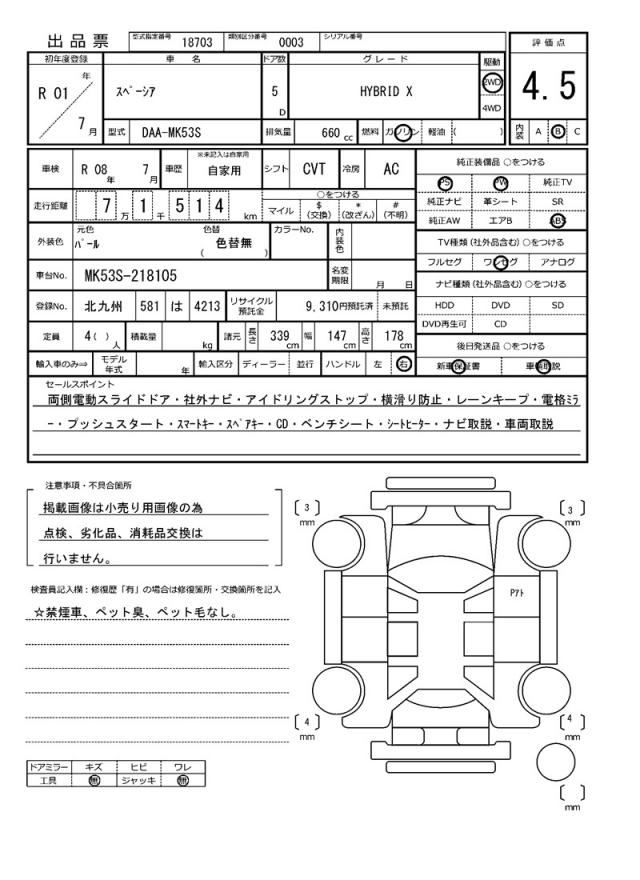 出品票 型式指定番号 18703 類別区分番号 0003 シリアル番号
評価点
4.5
内装 A B C
初年度登録 車名 ドア数 グレード 駆動
R 01 年 7 月 スペーシア 5 D HYBRID X 2WD 4WD
型式 DAA-MK53S 排気量 660 cc 燃料 ガソリン 軽油 ( )
車検 R 08 年 7 月 車歴 ※未記入は自家用 自家用 シフト CVT 冷房 AC
走行距離 7 万 1 千 5 1 4 km ○をつける
マイル $ (交換) * (改ざん) # (不明)
外装色 元色 パール 色替 ( 色替無 ) カラーNo. 内装色
車台No. MK53S-218105 名変期限 月 日
登録No. 北九州 581 は 4213 リサイクル預託金 9,310円預託済 未預託
定員 4 ( ) 人 積載量 kg 諸元 長さ 339 cm 幅 147 cm 高さ 178 cm
輸入車のみ⇒ モデル年式 年 輸入区分 ディーラー 並行 ハンドル 左 右
純正装備品 ○をつける
PS PW 純正TV
純正ナビ 革シート SR
純正AW エアB ABS
TV種類 (社外品含む) ○をつける
フルセグ ワンセグ アナログ
ナビ種類 (社外品含む) ○をつける
HDD DVD SD
DVD再生可 CD
後日発送品 ○をつける
新車保証書 車輌取説
セールスポイント
両側電動スライドドア・社外ナビ・アイドリングストップ・横滑り防止・レーンキープ・電格ミラ
ー・プッシュスタート・スマートキー・スペアキー・CD・ベンチシート・シートヒーター・ナビ取説・車両取説
注意事項・不具合箇所
掲載画像は小売り用画像の為
点検、劣化品、消耗品交換は
行いません。
検査員記入欄：修復歴「有」の場合は修復箇所・交換箇所を記入
☆禁煙車、ペット臭、ペット毛なし。
ドアミラー キズ ヒビ ワレ
工具 無 ジャッキ 無
3 mm
3 mm
アアト
4 mm
4 mm
mm